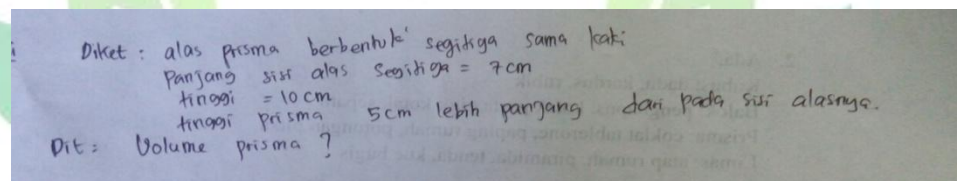 Diket : alas prisma berbentuk segitiga sama kaki
Panjang sisi alas segitiga = 7 cm
tinggi = 10 cm
tinggi prisma 5 cm lebih panjang dari pada sisi alasnya.
Dit : Volume prisma ?